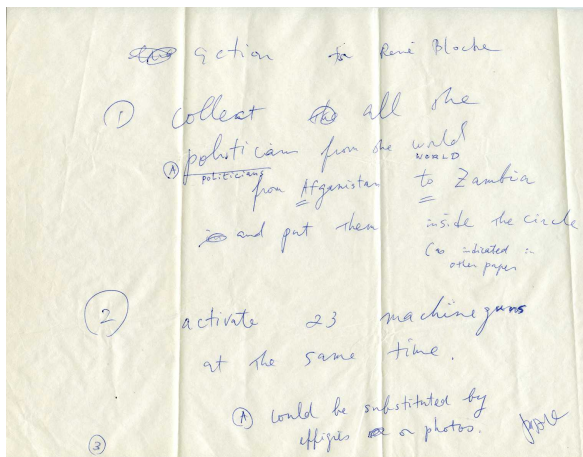 action for René Bloche
① collect all the
Ⓐ politicians from the world
politicians WORLD
from Afganistan to Zambia
and put them inside the circle
(as indicated in
other paper
② activate 23 machineguns
at the same time.
Ⓐ could be substituted by
effigies or photos.
③